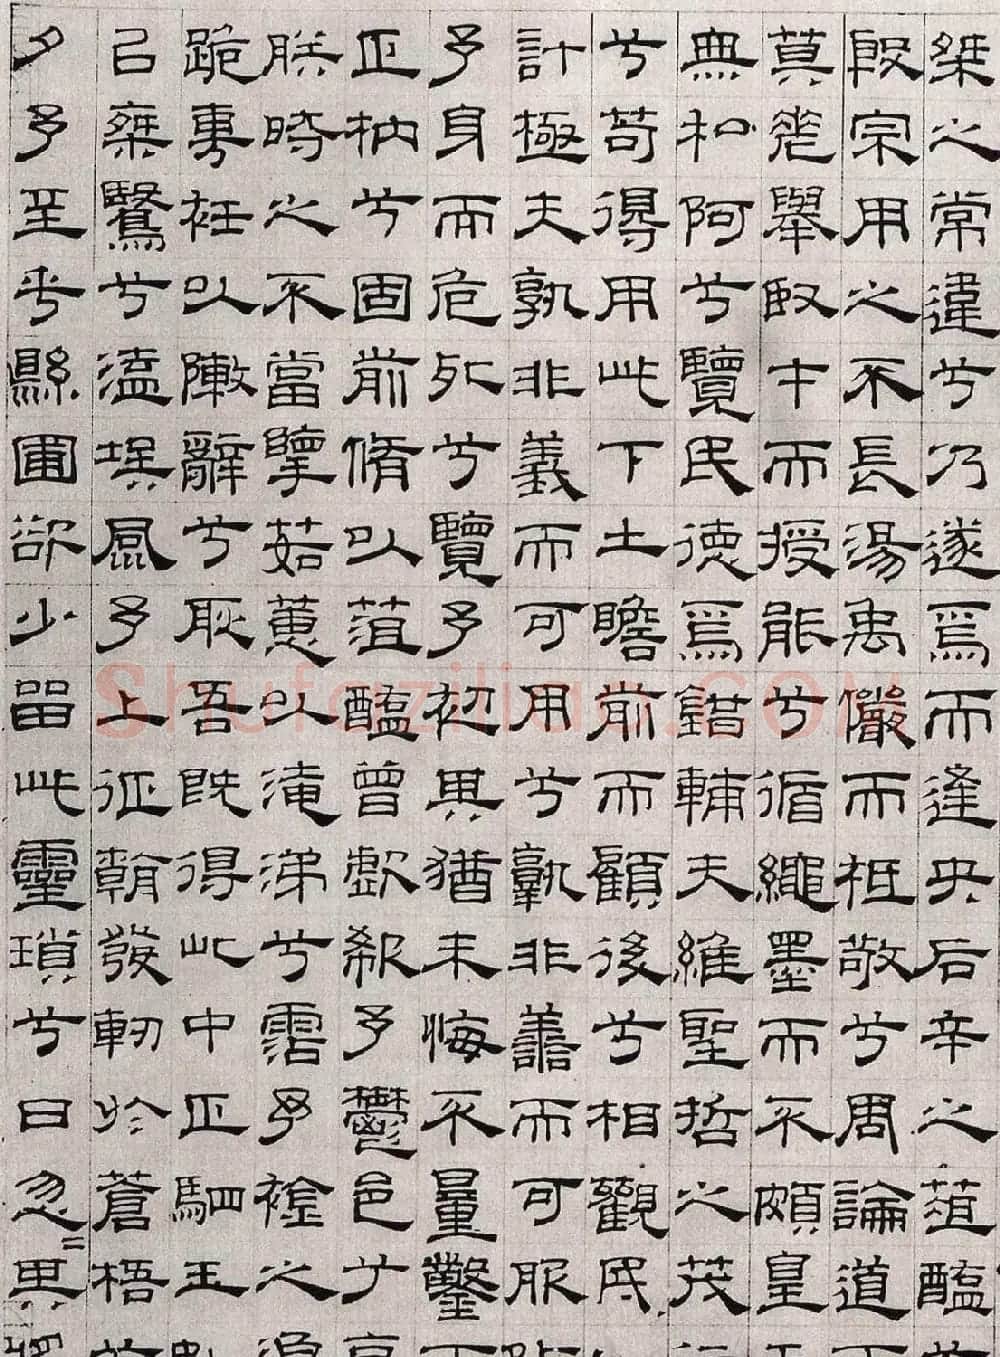 桀之常違兮乃遂焉而逢央后辛之菹醢
殷宗用之不長湯禹儼而祗敬兮周論道
莫差舉取才而授能兮循繩墨而不頗皇
無私阿兮覽民德焉錯輔夫維聖哲之茂
兮苟得用此下土瞻前而顧後兮相觀民
計極夫孰非義而可用兮孰非善而可服
予身而危死兮覽予初其猶未悔不量鑿
正枘兮固前脩以菹醢曾歔欷予鬱邑兮
朕時之不當擥茹蕙以淹涕兮霑予襟之
跪尃衽以陳辭兮耿吾既得此中正駟玉
已乘鷖兮溘埃風予上征朝發軔於蒼梧
夕予至乎縣圃欲少留此靈瑣兮日忽=其
Shufaziliao.COM